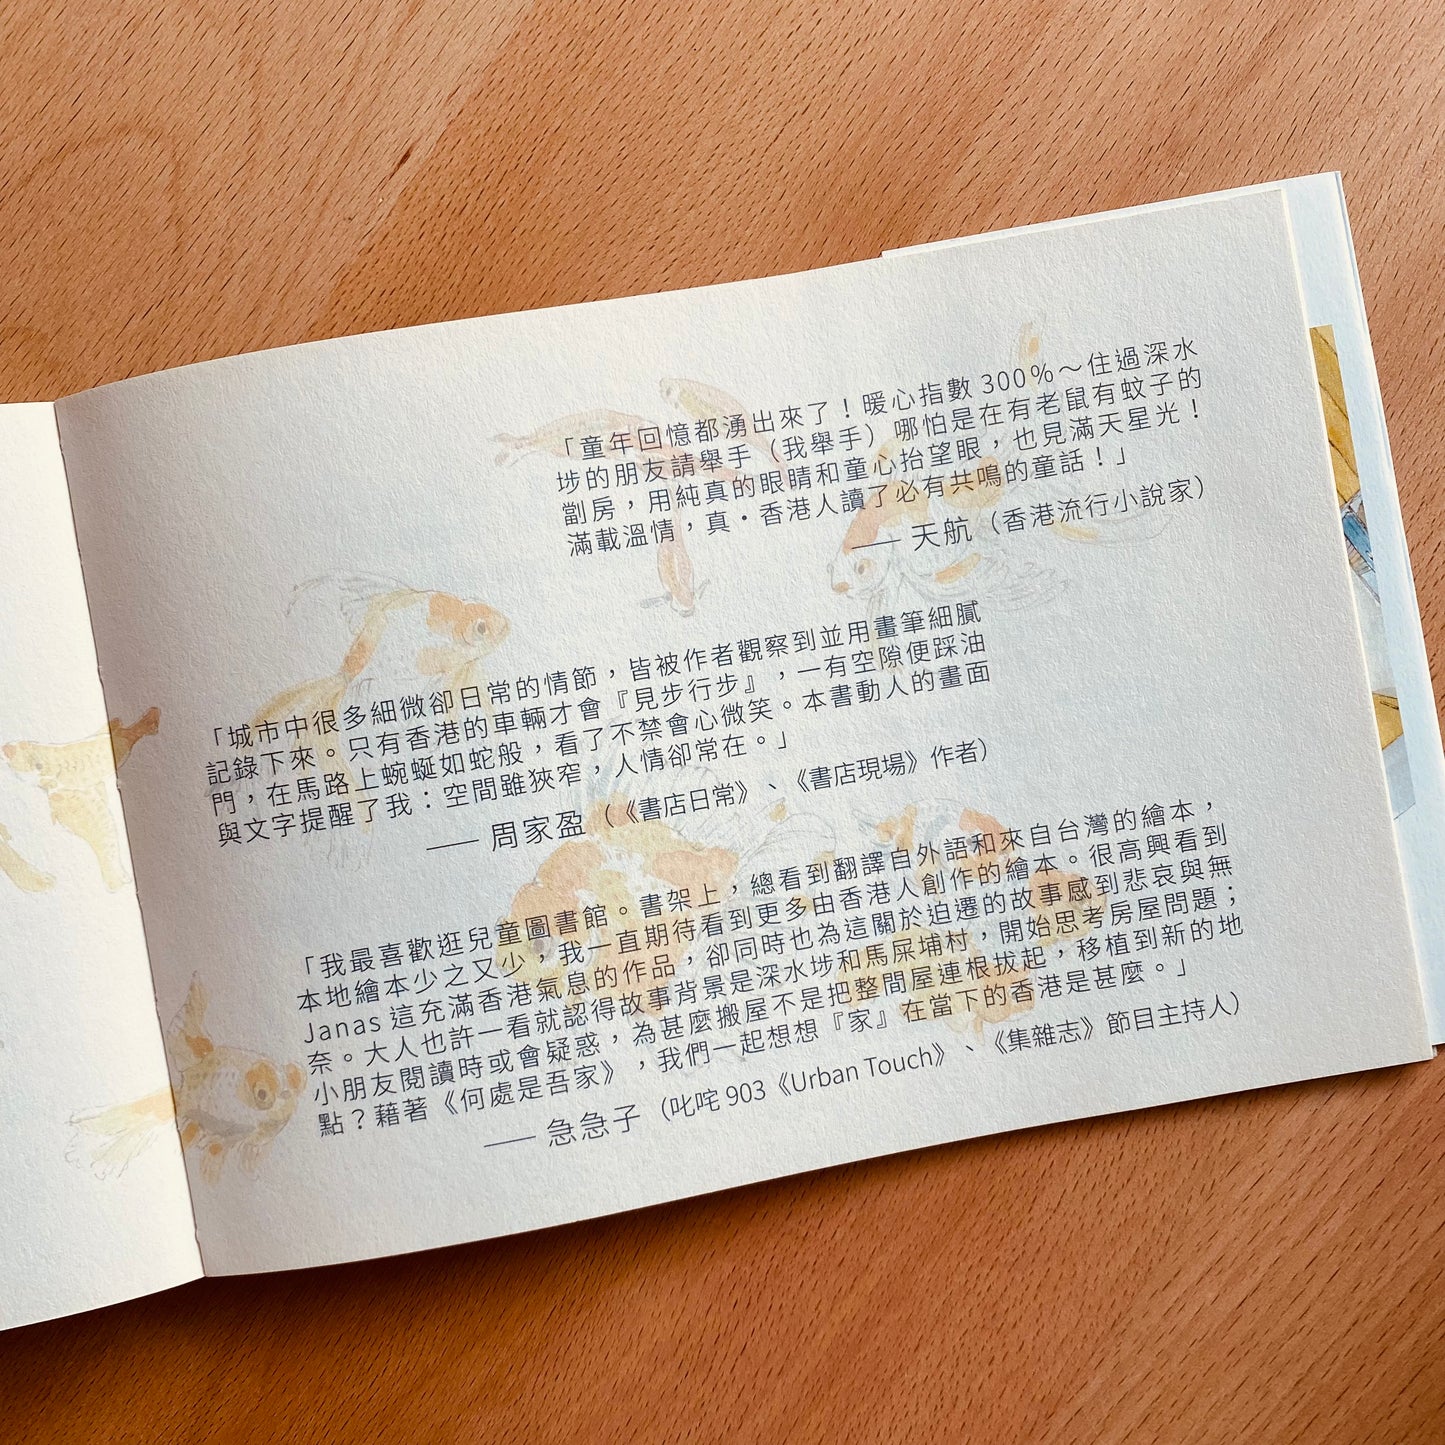 「童年回憶都湧出來了！暖心指數 300%～住過深水
埗的朋友請舉手（我舉手） 哪怕是在有老鼠有蚊子的
劏房，用純真的眼睛和童心抬望眼，也見滿天星光！
滿載溫情，真・香港人讀了必有共鳴的童話！」
—— 天航（香港流行小說家）
「城市中很多細微卻日常的情節，皆被作者觀察到並用畫筆細膩
記錄下來。只有香港的車輛才會『見步行步』，一有空隙便踩油
門，在馬路上蜿蜒如蛇般，看了不禁會心微笑。本書動人的畫面
與文字提醒了我：空間雖狹窄，人情卻常在。」
—— 周家盈（《書店日常》、《書店現場》作者）
「我最喜歡逛兒童圖書館。書架上，總看到翻譯自外語和來自台灣的繪本，
本地繪本少之又少，我一直期待看到更多由香港人創作的繪本。很高興看到
Janas 這充滿香港氣息的作品，卻同時也為這關於迫遷的故事感到悲哀與無
奈。大人也許一看就認得故事背景是深水埗和馬屎埔村，開始思考房屋問題；
小朋友閱讀時或會疑惑，為甚麼搬屋不是把整間屋連根拔起，移植到新的地
點？藉著《何處是吾家》，我們一起想想『家』在當下的香港是甚麼。」
—— 急急子（叱咤 903《Urban Touch》、《集雜志》節目主持人）